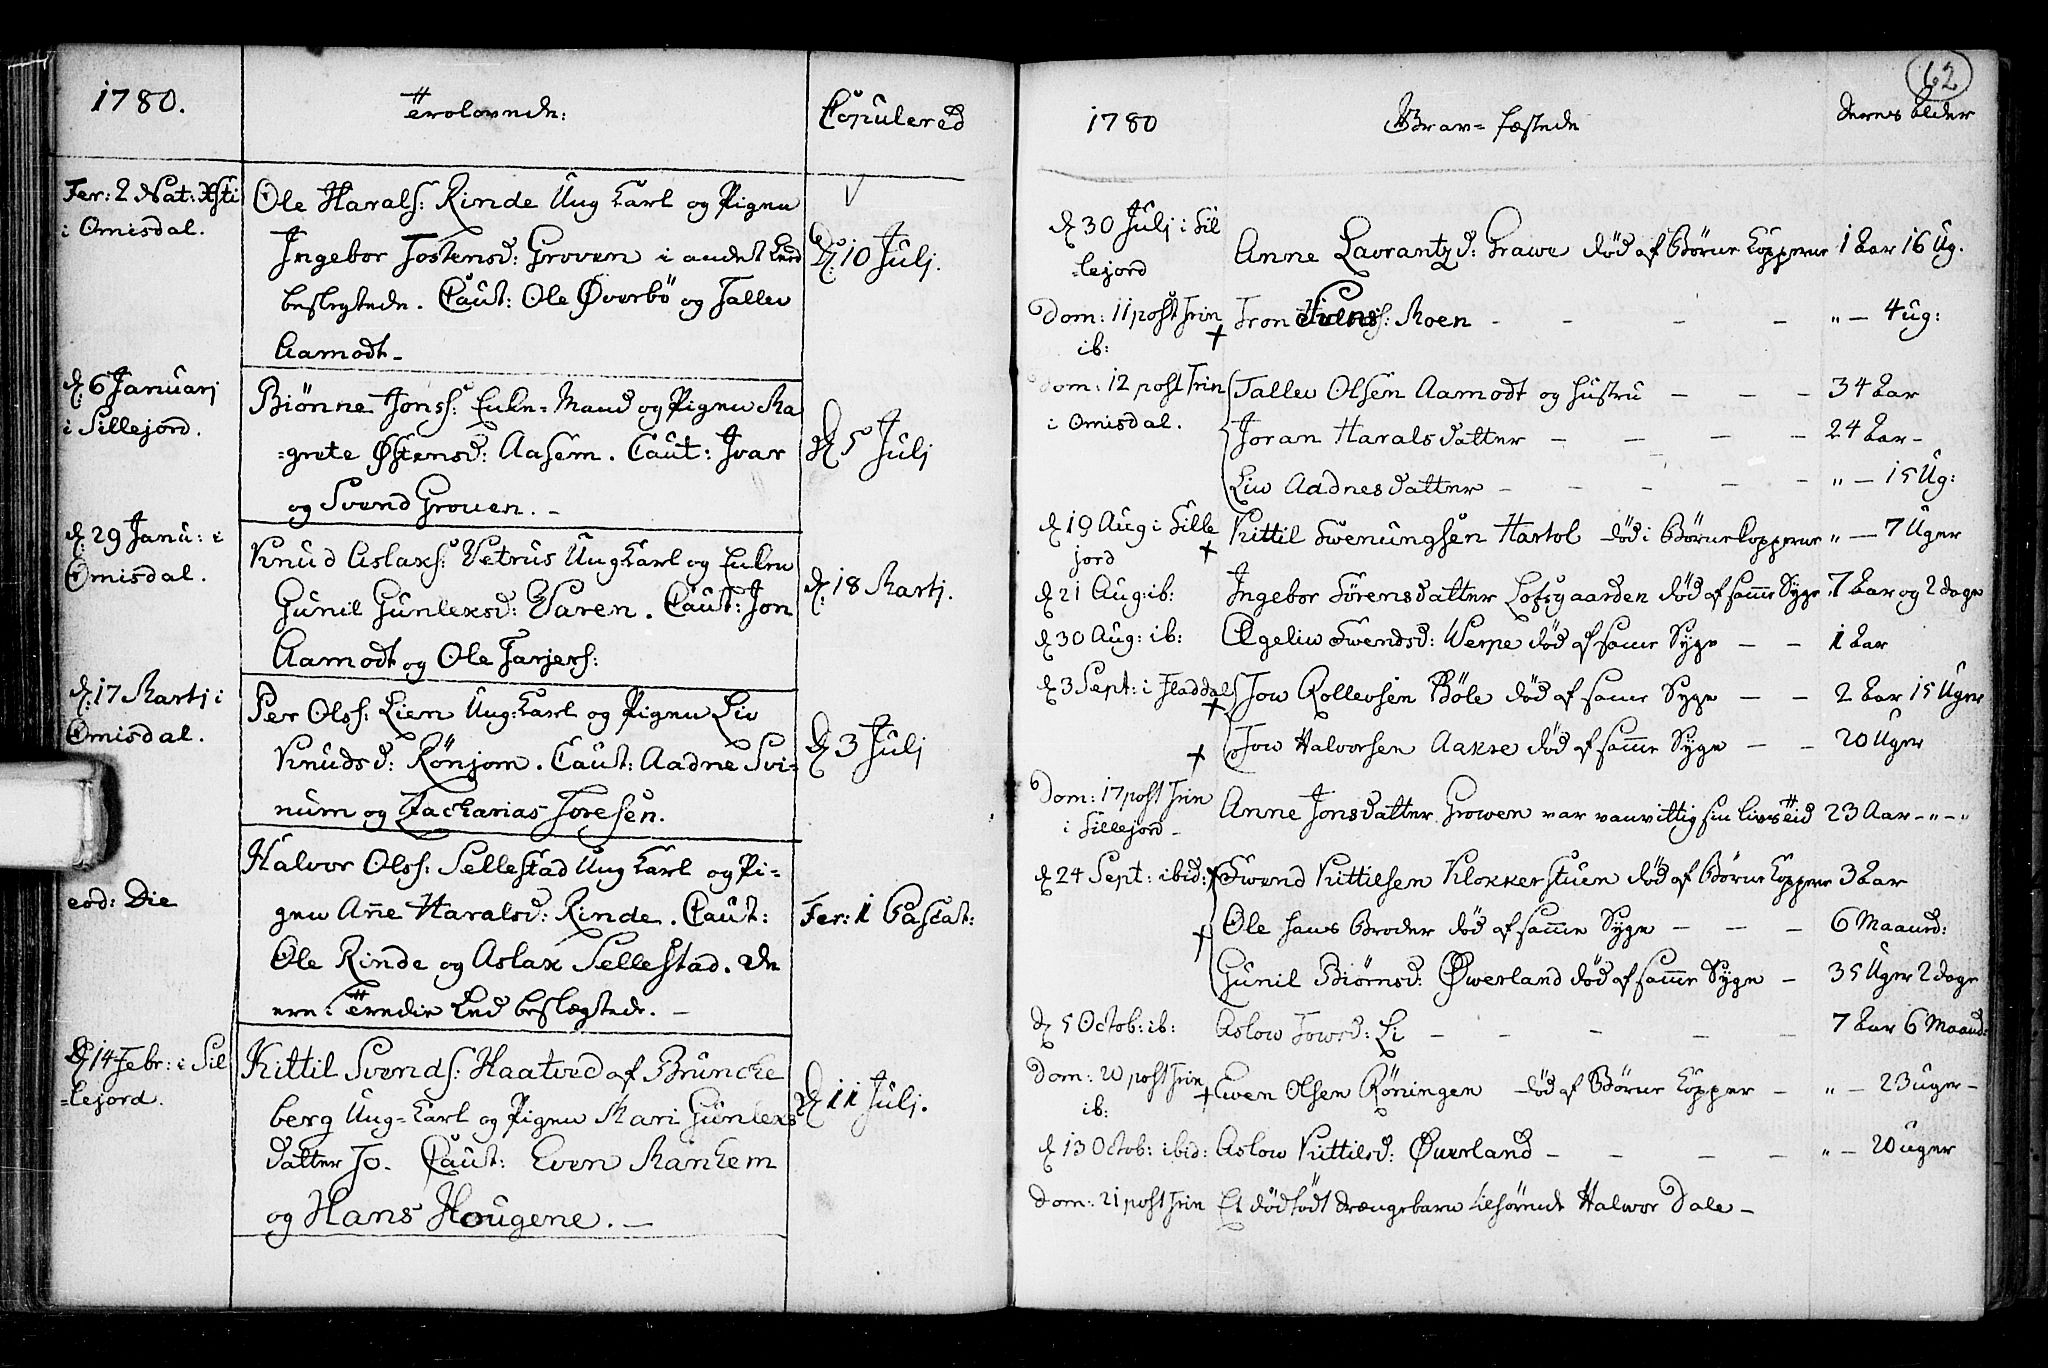 1780.
Trolovede:
Copulered
Fer: 2 Nat: Xsti
i Omisdal.
Ole Harals: Rinde Ung Karl og Pigen
Ingebor Jostensd: Groven i andet Leed
beslegtede. Caut: Ole Øverbö og Tallev
Aamodt_
d. 10 Julj.
d. 6 Januarj
i Sillejord.
Biönne Jonss: Enke=Mand og Pigen Ma
=grete Østensd: Aasem. Caut: Ivar
og Svend Groven._
d. 5 Julj
d. 29 Janu: i
Omisdal.
Knud Aslaks: Vetrus Ung Karl og Enken
Gunil Gunleksd: Varen. Caut: Jon
Aamodt og Ole Tarjers:
d. 18 Martj.
d. 17 Martj i
Omisdal.
Per Olss: Lien Ung: Karl og Pigen Liv
Knudsd: Rönjom. Caut: Aadne Svi=
num og Zacharias Toresen.
d. 3 Julj
eod: Die
Halvor Olss: Sellestad Ung Karl og Pi=
gen Añe Haralsd: Rinde. Caut:
Ole Rinde og Aslak Sellestad. De
ere i Tredie Led beslægtede._
Fer: 1 Pascat:
d. 14 Febr: i Sil
=lejord.
Kittil Svends: Haatved af Bruncke
berg Ung=Karl og Pigen Mari Gunleks
datter Jo. Caut: Even Mankem
og Hans Hougene._
d. 11 Julj.
62
1780
Grav=fæstede
deres Alder
d. 30 Julj i Sil
=lejord
Anne Lavrantzd: Grawe död af Börne Kopperne 1 Aar 16 Ug.
Dom: 11 post Trin
ib:
Tron Moen - - - - „ - 4 ug:
Dom: 12 post Trin
i Omisdal.
Tallev Olsen Aamodt og Hustru - - - 34 Aar
Joran Haralsdatter - - - - 24 Aar-
Liv Aadnesdatter - - - - - „ - 15 Ug:
d. 19 Aug i Sille
jord
Kittil Swenungsen Hartol död i Börnekopperne „ - 7 Uger
d. 21 Aug: ib: Ingebor Sörensdatter Lofsgaarden död af samme Syge 7 Aar og 2 dage
d. 30 Aug: ib: Egeliw Swendsd: Verpe död af samme Syge - - 1 Aar
d. 3 Sept: i Fladdal Jow Rollevsen Böle död af samme Syge - - 2 Aar 15 Uger
Jow Halvorsen Aakre död af samme Syge - - 20 Uger
Dom: 17 post Trin
i Sillejord_
Anne Jonsdatter Growen var vanvittig sin livs tid 23 Aar -„-„
d. 24 Sept: ibid: Swend Kittilsen Klokkerstuen död af Börne Koppene 3 Aar
Ole hans Broder död af samme Syge - - - 6 Maaned:
Gunil Biörnsd: Øwerland död af samme Syge - 35 Uger 2 dage
d. 5 Octob: ib: Aslow Towsd: Li - - - - - 7 Aar 6 Maaned:
Dom: 20 post Trin
ib:
Ewen Olsen Röningen död af Börne Kopper - „ - 23 uger-
d. 13 Octob: ibid: Aslow Kittilsd: Øverland - - - - „ - 20 uger
Dom: 21 post Trin Et dödfödt drængebarn tilhörende Halwor Dale-